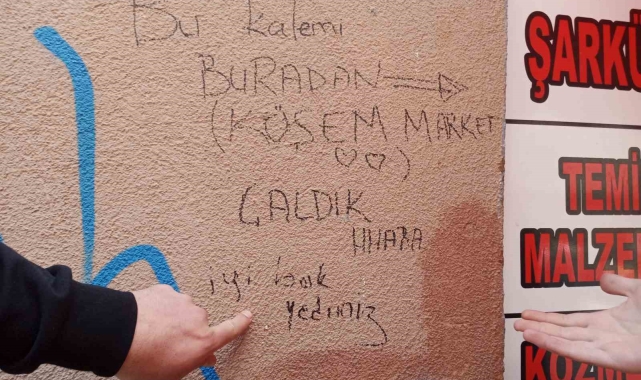 Bu kalemi
BURADAN
(KÖŞEM MARKET
)
ÇALDIK
iyi
yediniz
ŞARKÜ
TEMİ
MALZE
KOZME